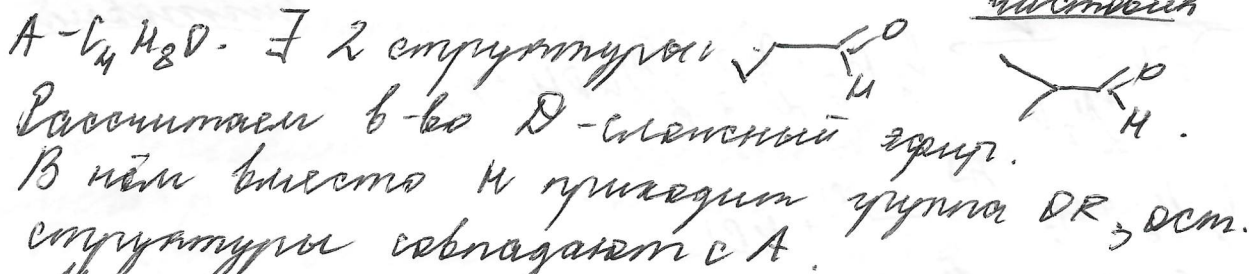 чистовик
A - C₄H₈O. ∃ 2 структуры: O H O H.
Рассчитаем в-во D - сложный эфир.
В нём вместо H приходит группа OR, ост.
структуры совпадают с A.